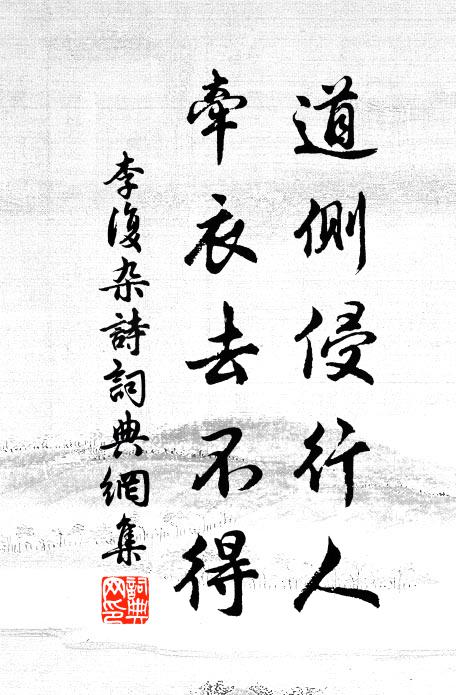 道側侵行人
牽衣去不得
李復杂詩詞典網集
詞典网印